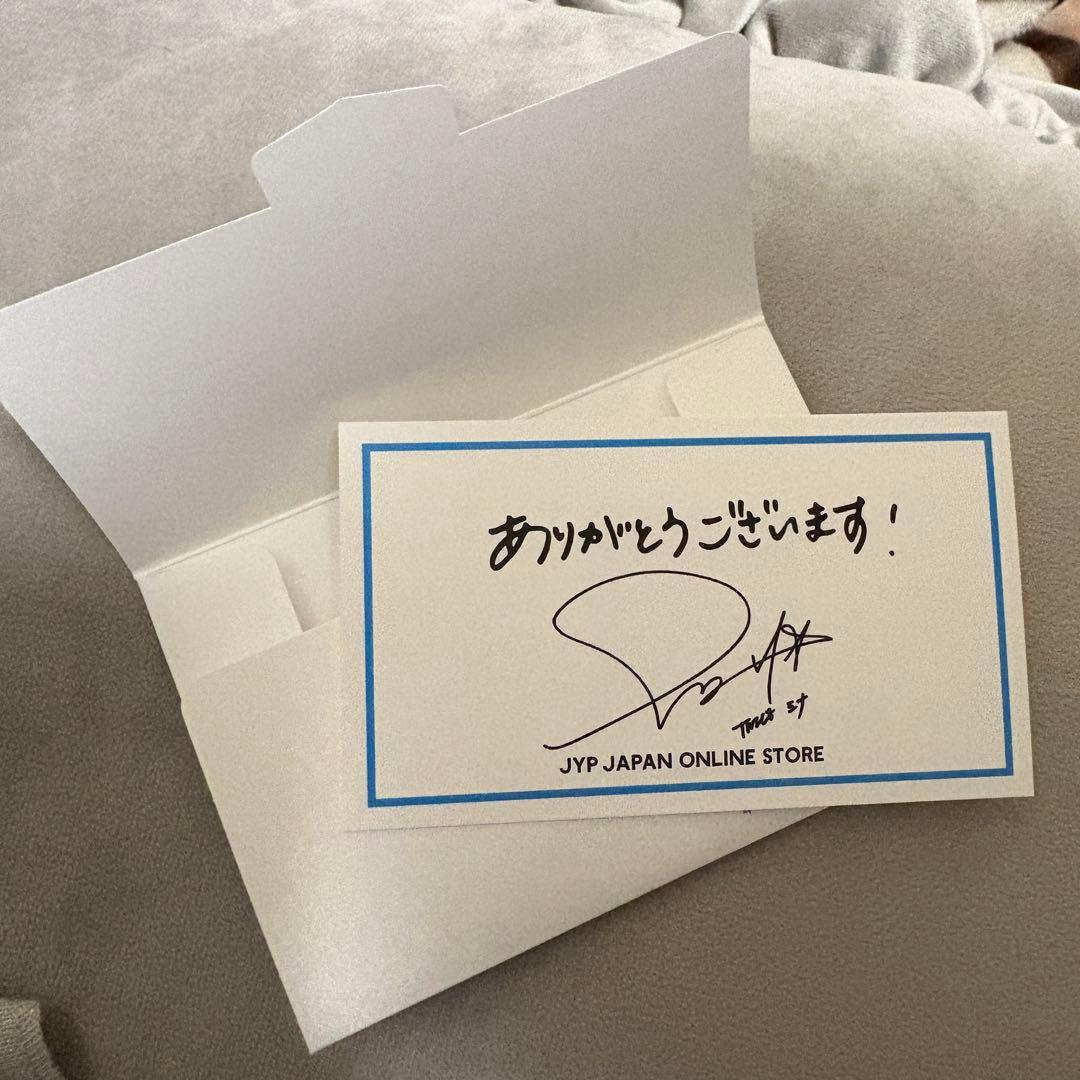 ありがとうございます!
JYP JAPAN ONLINE STORE